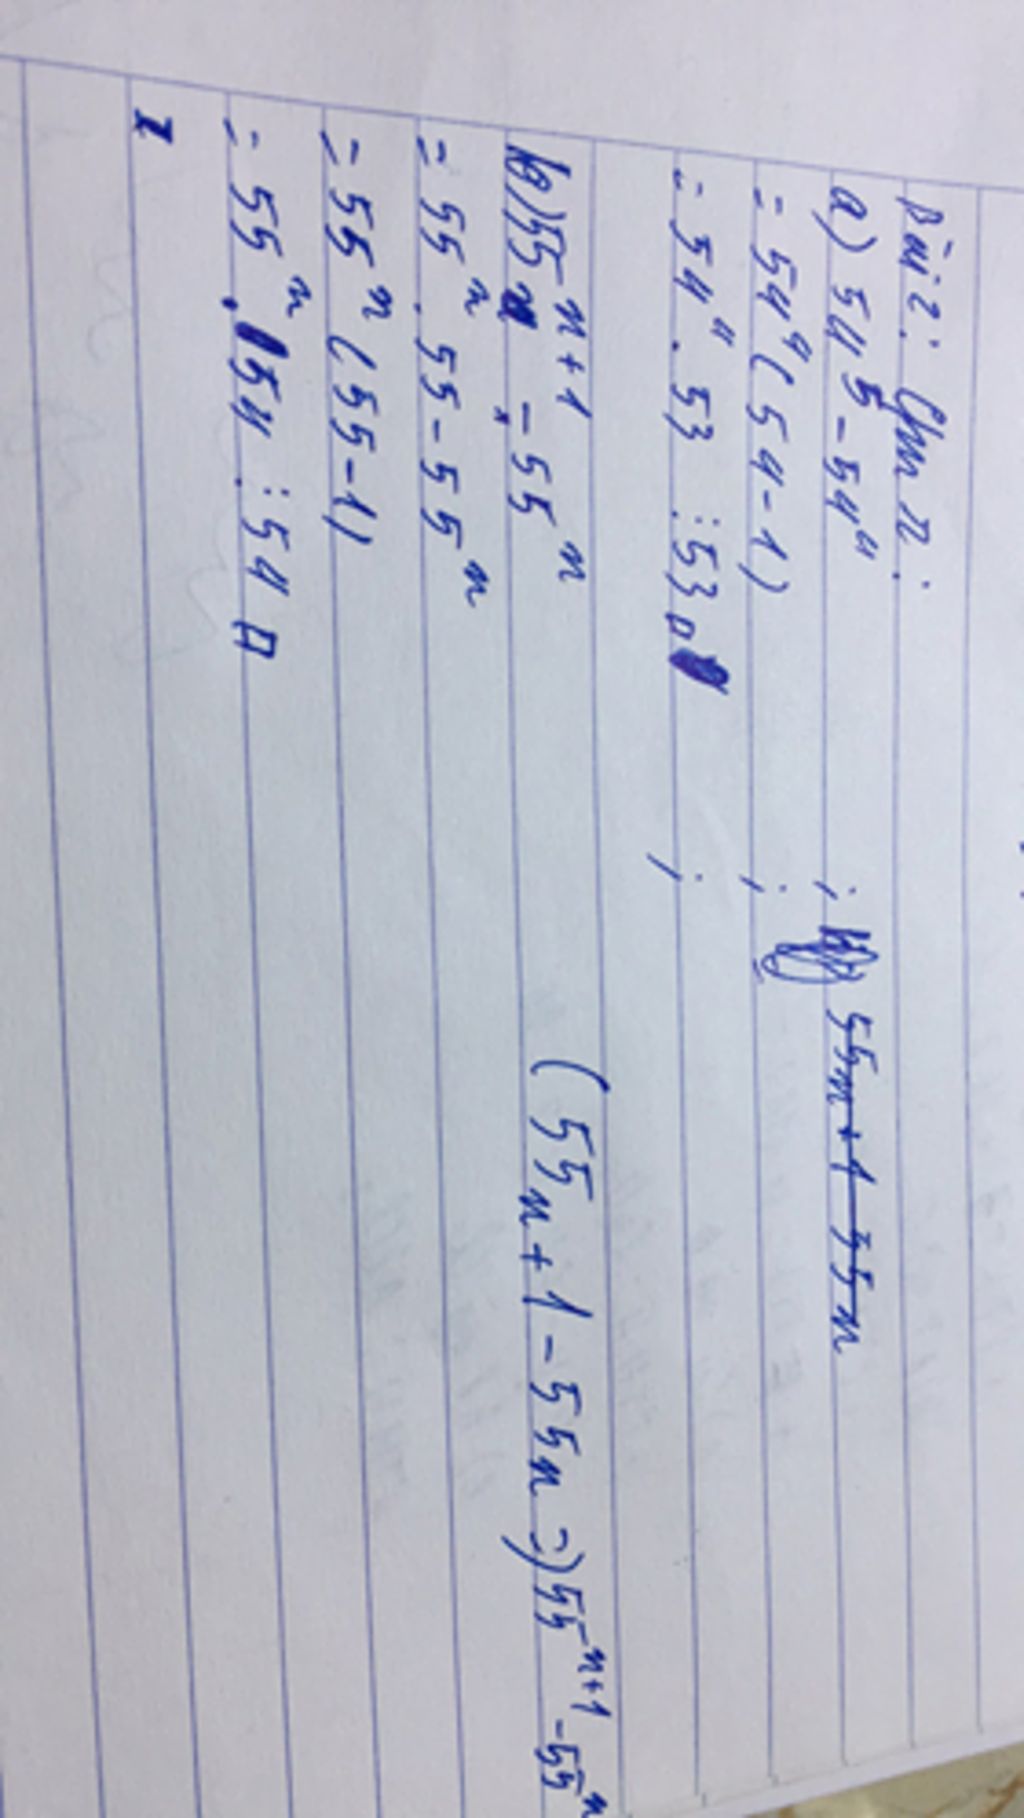 Bài 2: Cm r:
a) 54⁵ - 54⁴ ; 55n+1 55n
= 54⁴ (54-1) ;
= 54⁴ . 53 ⋮ 53 □ ;
b) 55ⁿ⁺¹ - 55ⁿ (55n+1 - 55n =) 55ⁿ⁺¹ - 55ⁿ
= 55ⁿ . 55 - 55ⁿ
= 55ⁿ (55-1)
= 55ⁿ . 54 ⋮ 54 □